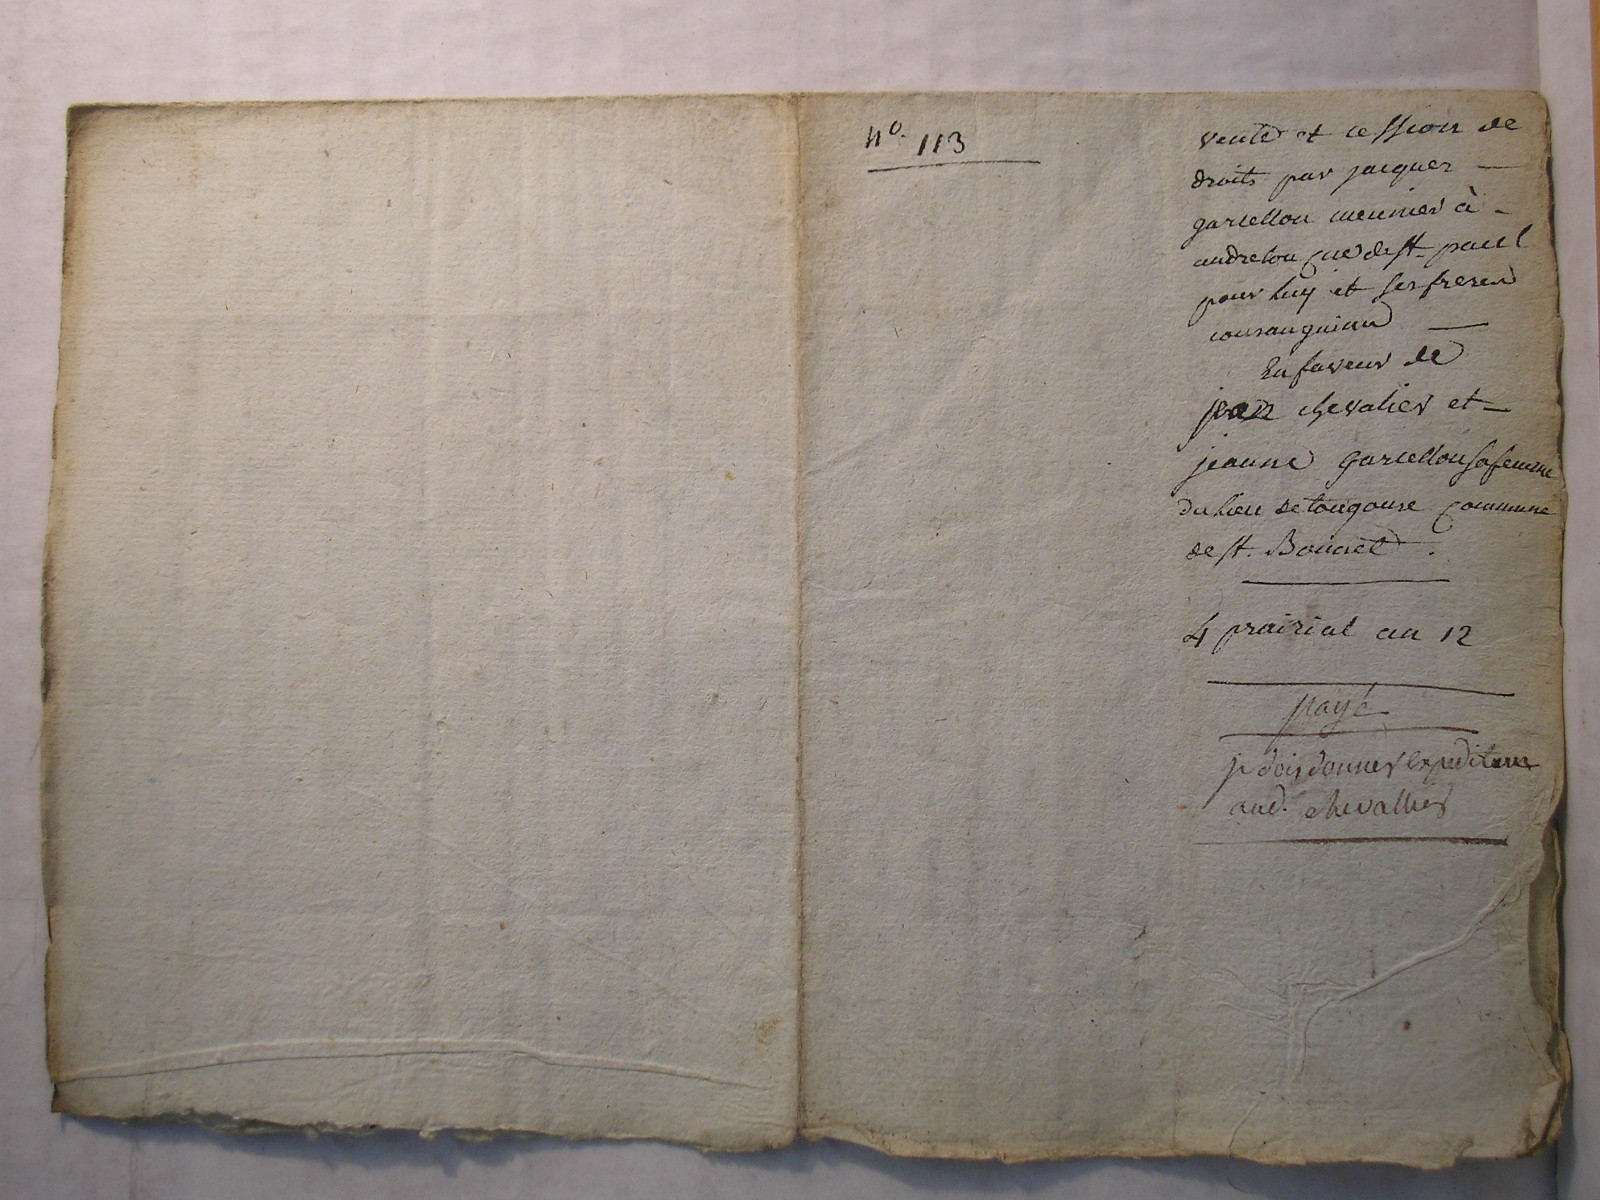 n°. 113
vente et cession de
droits par jacques
garcellon meunier à
andrelou cne de st. paul
pour luy et ses freres
consanguins
En faveur de
jean chevalier et
jeanne garcellon sa femme
du lieu de tougouse commune
de st. Bonnet.
4 prairial an 12
payé
je dois donner expedition
aud. chevallier